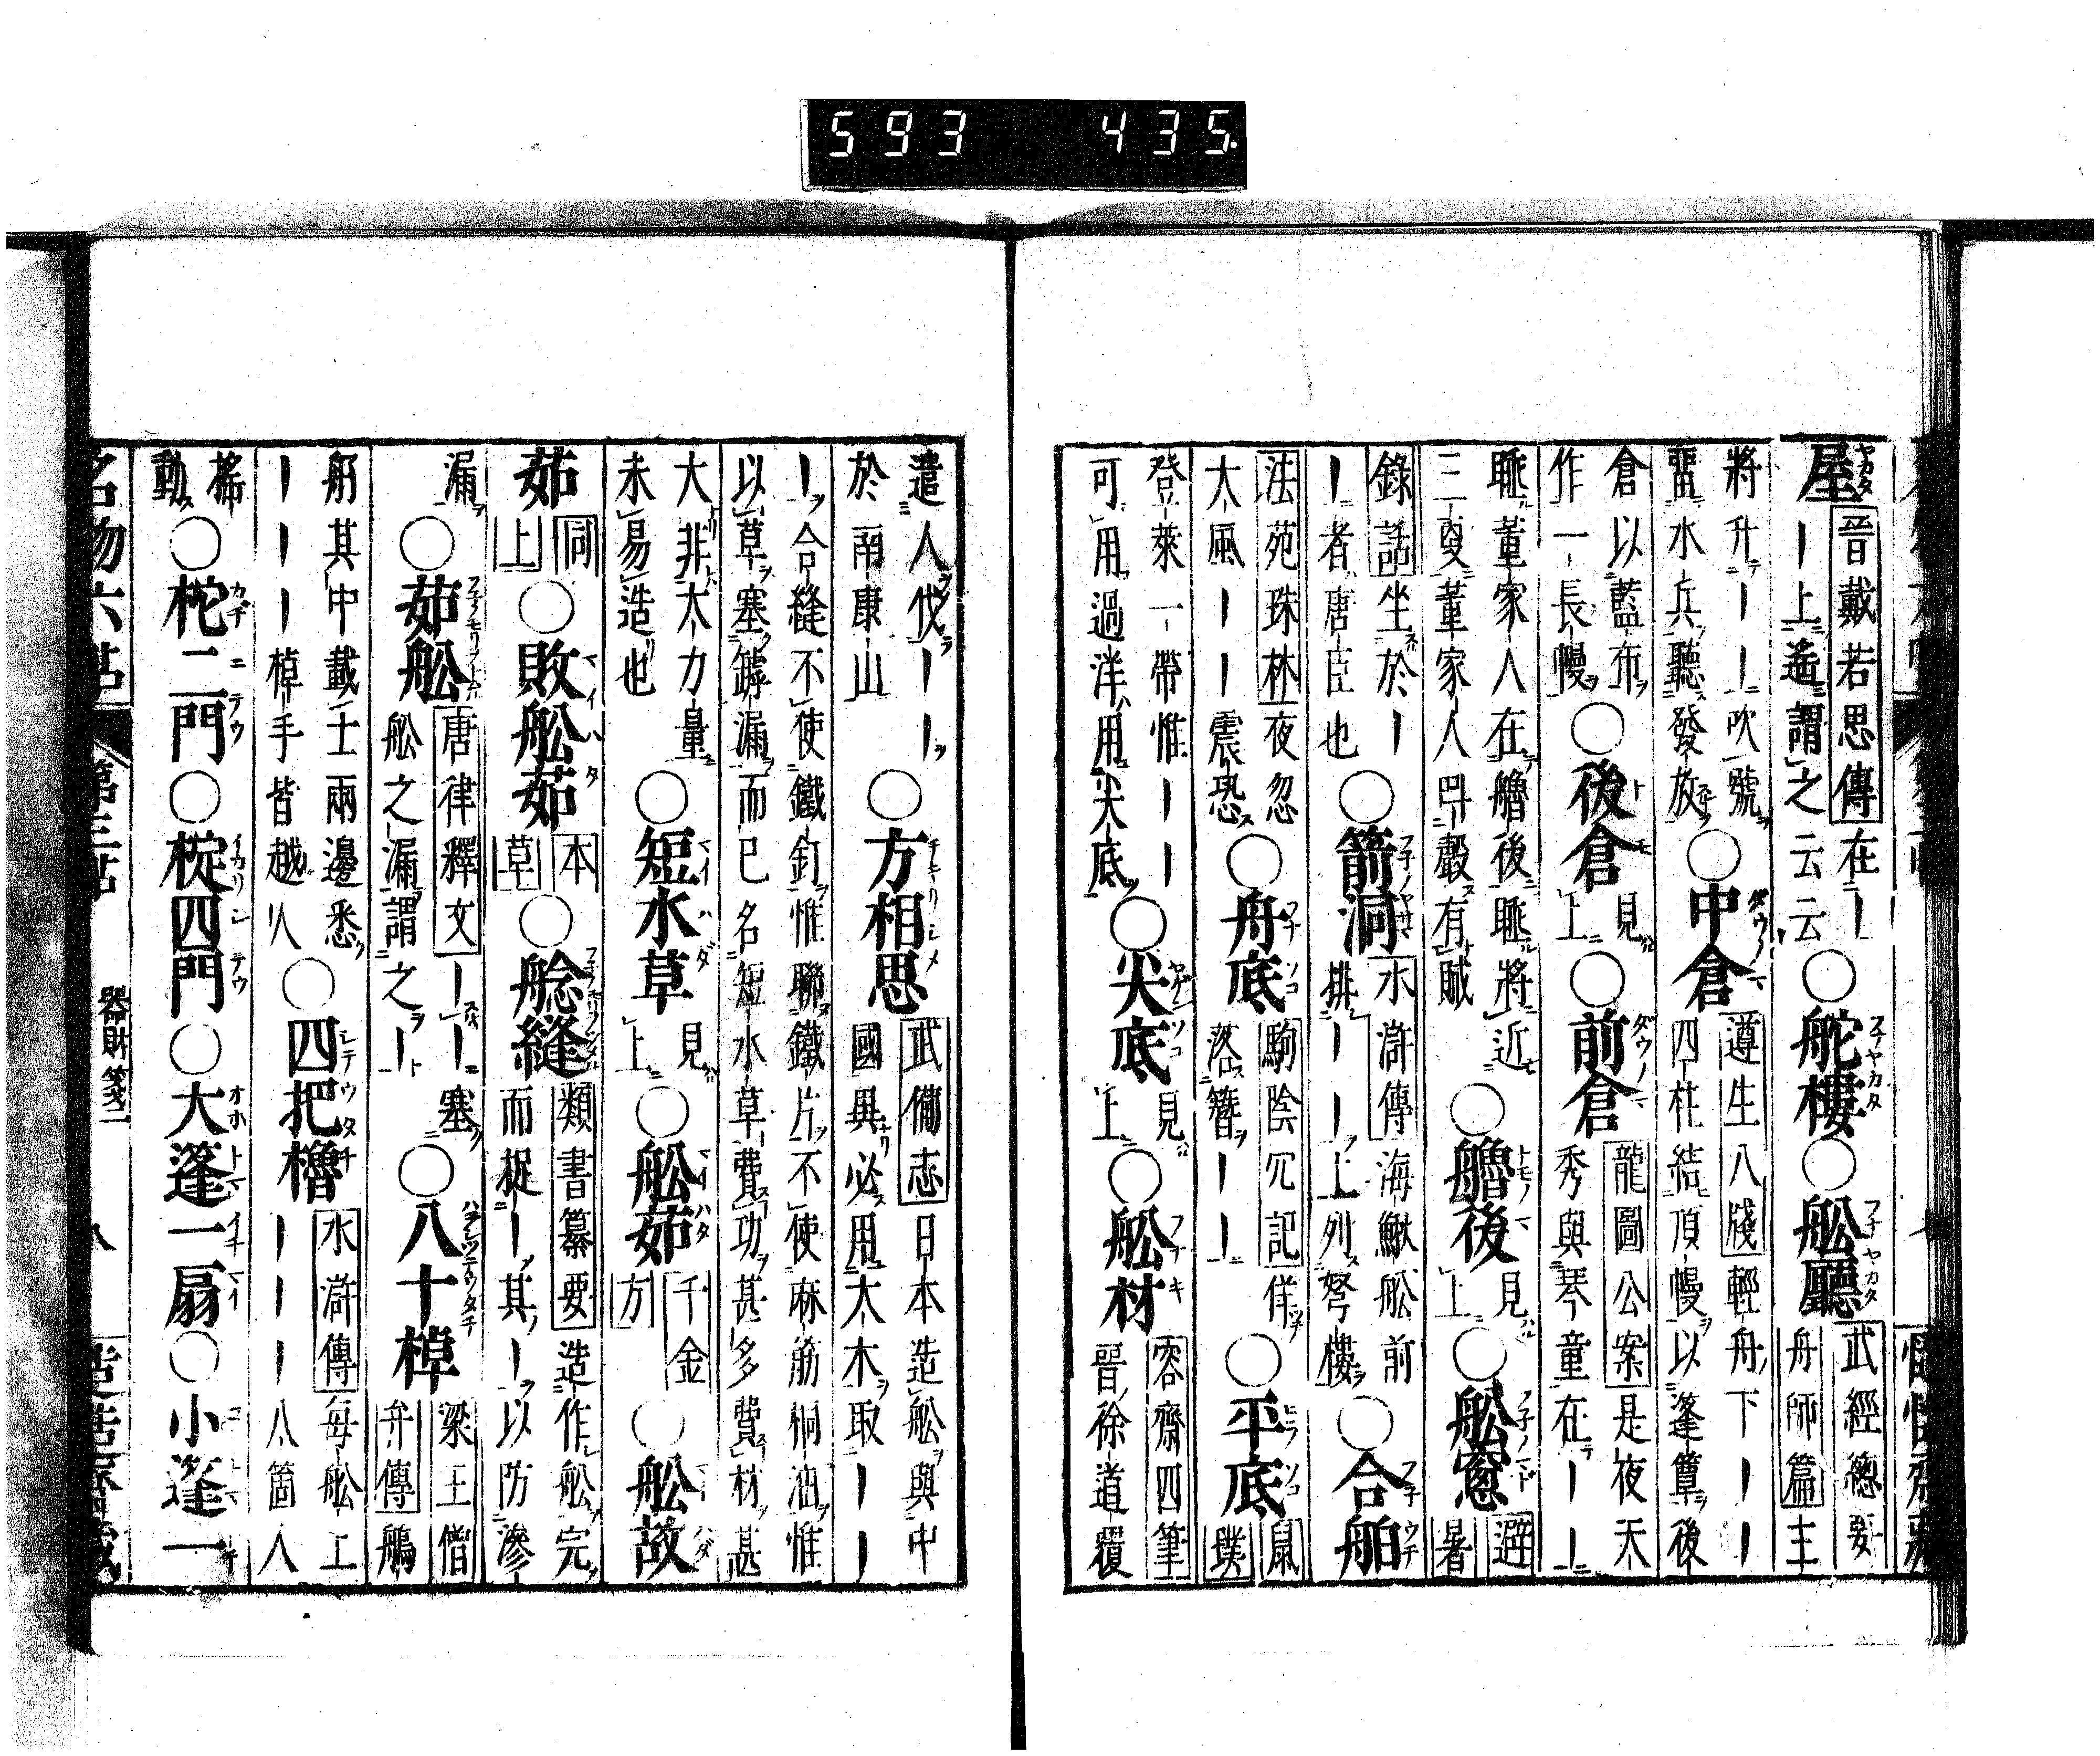 593 435.
屋 晉戴若思傳在丨
丨上遙謂之云云
○舵樓○舩廳 武經總要
舟師篇主
將升丨丨吹號
畱水兵聽發放
○中倉 遵生八牋輕舟下丨丨
四柱結頂幔以篷簟後
倉以藍布
作一長幔
○後倉 見上
○前倉 龍圖公案是夜天
秀與琴童在丨丨
睡董家人在艪後睡將近
三更董家人呌殺有賊
○艪後 見上
○舩窓 避暑
錄話坐於丨
丨者唐臣也
○箭洞 水滸傳海鰍舩前
排丨丨上列弩樓
○合舶
法苑珠林夜忽
大風丨丨震恐
○舟底 駒陰冗記佯
落簪丨丨
○平底 鼠璞
登萊一帶惟丨丨
可用過洋用尖底
○尖底 見上
○舩材 容齋四筆
晉徐道覆
遣人伐丨丨
於南康山
○方相思 武備志日本造舩與中
國異必用大木取丨丨
丨合縫不使鐵釘惟聯鐵片不使麻筋桐油惟
以草塞罅漏而已名短水草費功甚多費材甚
大非大力量
未易造也
○短水草 見上
○舩茹 千金方
○舩故
茹 同上
○敗舩茹 本草
○艌縫 類書纂要造作舩完
而捉丨其丨以防滲
漏
○茹舩 唐律釋文丨丨塞
舩之漏謂之丨
○八十棹 梁王僧
弁傳鵃
舠其中載士兩邊悉
丨丨丨棹手皆越人
○四把櫓 水滸傳每舩上
丨丨丨八箇人
榣動
○柁二門○椗四門○大篷一扇○小篷一
名物六帖 第三帖 器財箋二 八